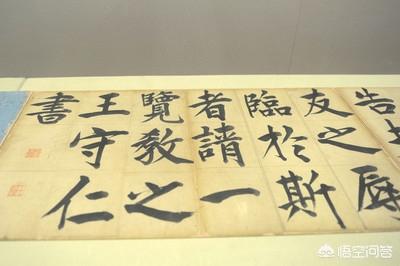 告
友之辱
臨於斯
者請一
覽教之
王守仁
書
悟空问答